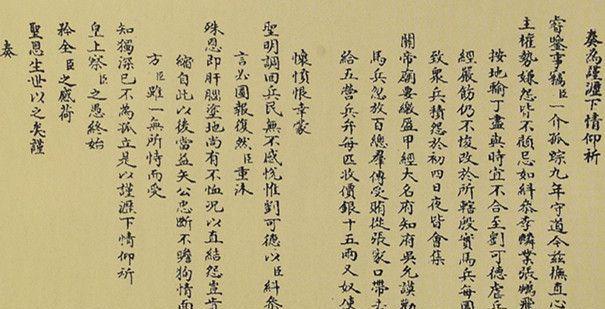 奏為瀝下情仰祈
睿鑒事竊臣一介孤踪九年守道今茲撫直心
主權勢嫌怨皆不顧忌如糾參李麟業張鵬飛
按地輸丁盡與時宜不合至劉可德虐兵
經嚴飭仍不悛改於所轄殷實馬兵每圖
致衆兵積怨於初四日夜皆會集
關帝廟要繳盔甲經大名府知府吳允謨勸
馬兵忽放百總羣傳受賄從張家口帶去
給五營兵弁每匹收價銀十五兩又奴使
懷憤恨幸蒙
聖明調回兵民無不感悅惟劉可德以臣糾參
言必圖報復然臣重沐
殊恩即肝腦塗地尚有不恤況以直結怨豈肯
縮自此以後當益矢公忠斷不瞻狥情面
方臣雖一無所恃而受
知獨深已不為孤立是以謹瀝下情仰祈
皇上察臣之愚終始
矜全臣之感荷
聖恩生世以之矣謹
奏